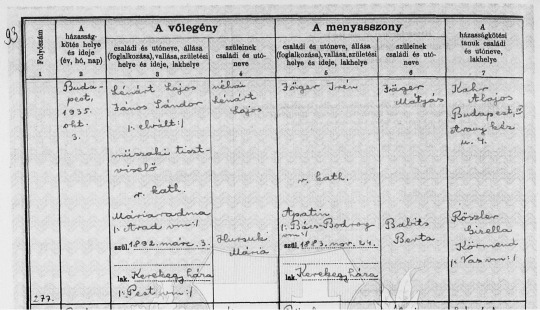 93
Folyószám
A házasság-
kötés helye
és ideje
(év, hó, nap)
A vőlegény
családi és utóneve, állása
(foglalkozása), vallása, születési
helye és ideje, lakhelye
szüleinek
családi és utó-
neve
A menyasszony
családi és utóneve, állása
(foglalkozása), vallása, születési
helye és ideje, lakhelye
szüleinek
családi és utó-
neve
A
házasságkötési
tanuk családi
és utóneve,
lakhelye
1
2
3
4
5
6
7
277.
Buda-
pest,
1935.
okt.
3.
Lénárt Lajos
János Sándor
/: elvált :/
műszaki tiszt-
viselő
r. kath.
Máriaradna
/: Arad vm :/
szül. 1892. márc. 3.
lak. Kerekegyháza
/: Pest vm :/
néhai
Lénárt
Lajos
Hursuki
Mária
Jäger Irén
r. kath.
Apatin
/: Bács-Bodrog
vm :/
szül. 1883. nov. 24.
lak. Kerekegyháza
Jäger
Mátyás
Babits
Berta
Kahr
Alajos
Budapest,
Arany kéz
u. 4.
Rössler
Gisella
Körmend
/: Vas vm :/